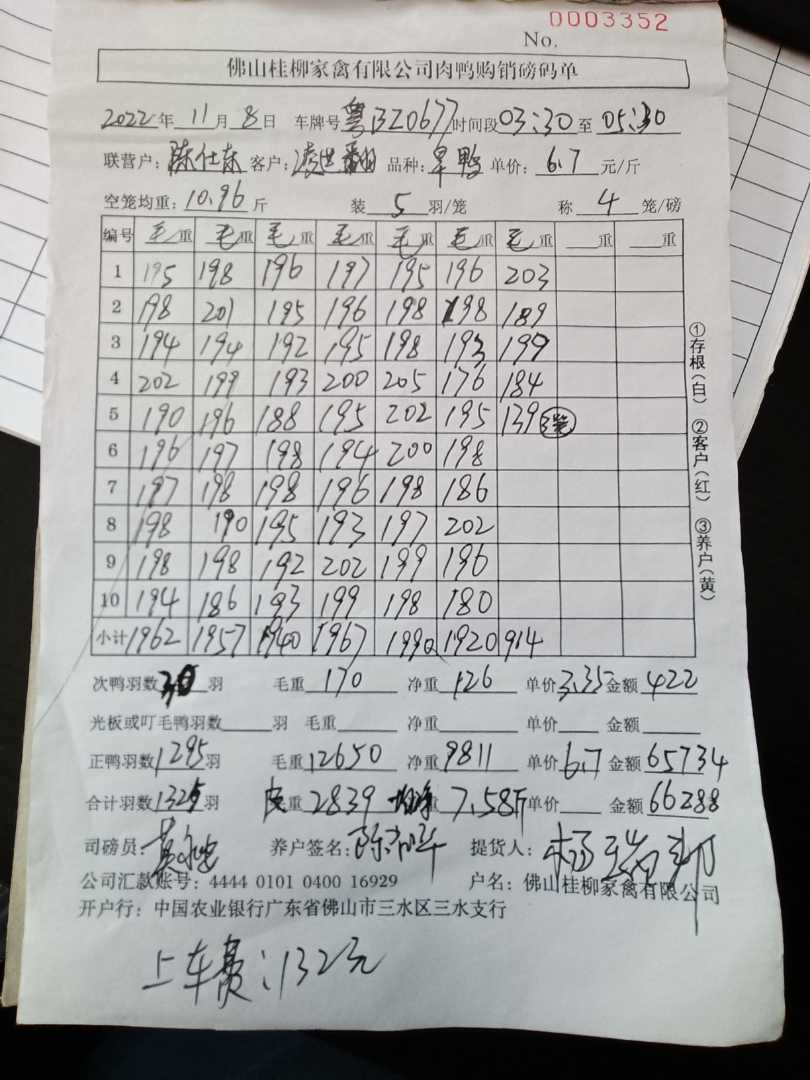 0003352
No.
佛山桂柳家禽有限公司肉鸭购销磅码单
2022年 11月 8日 车牌号 粤BZ0677 时间段 03:30 至 05:30
联营户: 陈仕东 客户: 品种: 旱鸭 单价: 6.7 元/斤
空笼均重: 10.96 斤 装 5 羽/笼 称 4 笼/磅
编号 毛重 毛重 毛重 毛重 毛重 毛重 毛重 重 重
1 195 198 196 197 195 196 203
2 198 201 195 196 198 198 189
3 194 194 192 195 198 193 199
4 202 199 193 200 205 176 184
5 190 196 188 195 202 195 139 3笼
6 196 197 198 194 200 198
7 197 198 198 196 198 186
8 198 190 195 193 197 202
9 198 198 192 202 199 196
10 194 186 193 199 198 180
小计 1962 1957 1940 1967 1990 1920 914
次鸭羽数 30 羽 毛重 170 净重 126 单价 3.35 金额 422
光板或叮毛鸭羽数 羽 毛重 净重 单价 金额
正鸭羽数 1295 羽 毛重 12650 净重 9811 单价 6.7 金额 65734
合计羽数 1325 羽 皮重 2839 均净 7.58斤 单价 金额 66288
司磅员: 养户签名: 提货人:
公司汇款账号: 4444 0101 0400 16929 户名: 佛山桂柳家禽有限公司
开户行: 中国农业银行广东省佛山市三水区三水支行
上车费: 132元
①存根(白) ②客户(红) ③养户(黄)